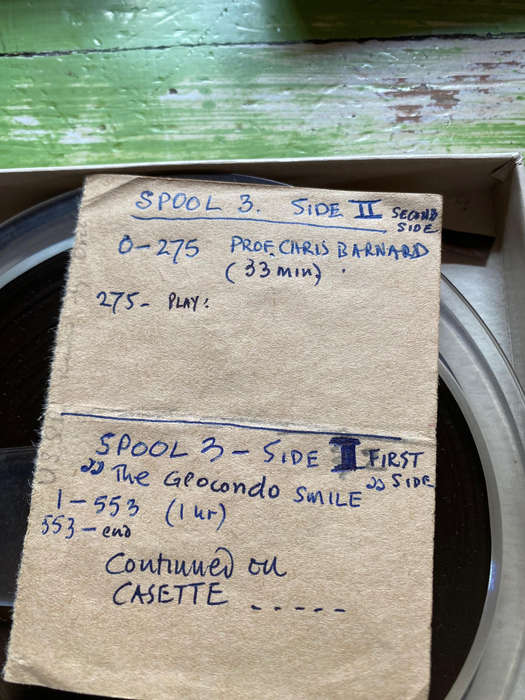 SPOOL 3. SIDE II SECOND SIDE
0-275 PROF. CHRIS BARNARD
(33 min).
275- PLAY:
SPOOL 3 - SIDE I FIRST SIDE
" The GEOCONDO SMILE "
1-553 (1 hr)
553-end
Continued on
CASETTE -----